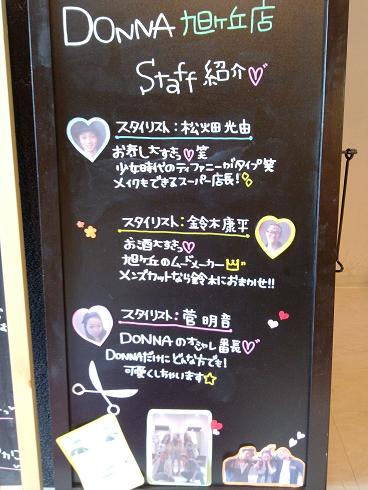 DONNA 旭ヶ丘店
Staff 紹介♡
スタイリスト：松畑 光由
お寿し大すきっ♡笑
少女時代のティファニーがタイプ笑
メイクもできるスーパー店長！
スタイリスト：鈴木康平
お酒大すきっ♡
旭ヶ丘のムードメーカー
メンズカットなら鈴木におまかせ!!
スタイリスト：菅 明音
DONNAのオシャレ番長♡
DONNAだけにどんな方でも！
可愛くしちゃいます☆